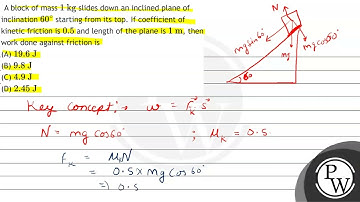 A block of mass 1 kg slides down an inclined plane of
inclination 60° starting from its top. If coefficient of
kinetic friction is 0.5 and length of the plane is 1 m, then
work done against friction is
(A) 19.6 J
(B) 9.8 J
(C) 4.9 J
(D) 2.45 J
N
mg sin60°
mg
mg cos60°
60°
Key concept:→ w = f⃗k · s⃗
N = mg cos60° ; μk = 0.5
fk = μkN
= 0.5 × mg cos 60°
⇒ 0.5
PW